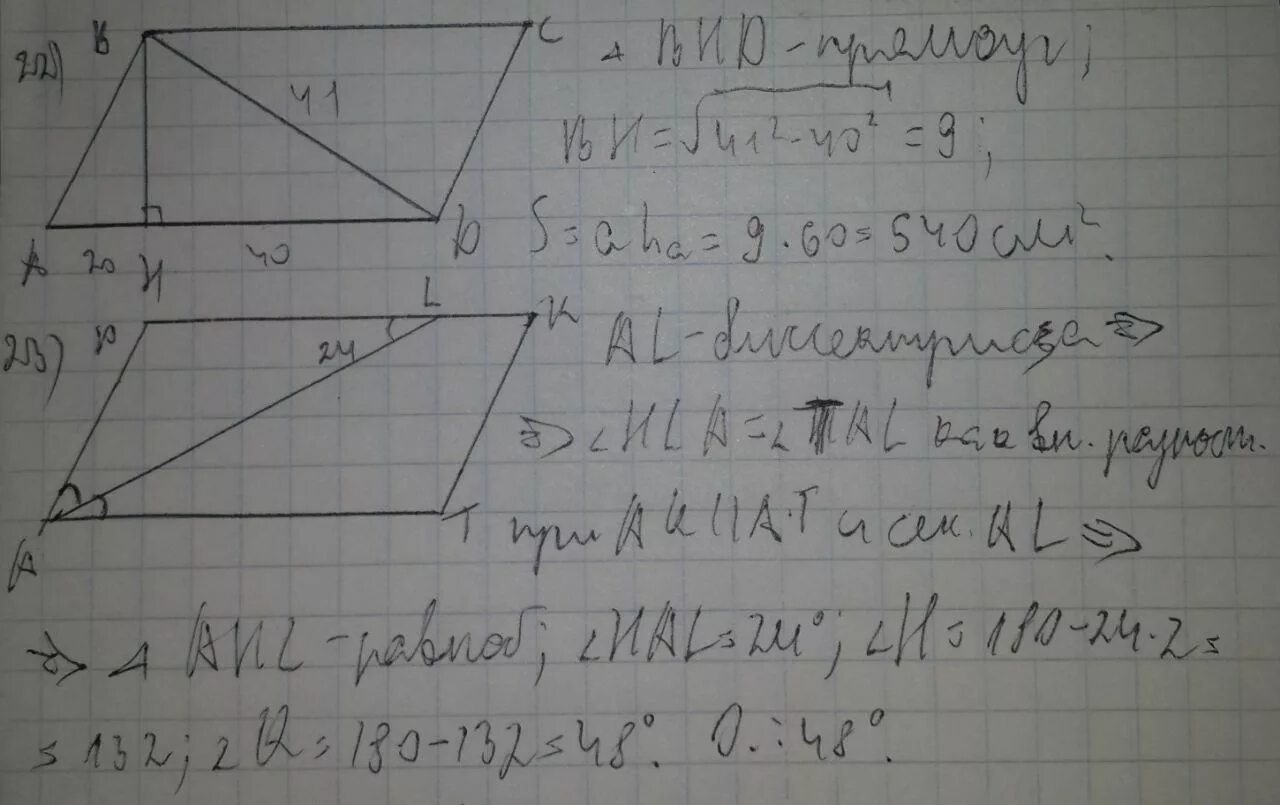 22)
B
C
41
A
20
H
40
D
△ BHD - прямоуг;
BH = √41²-40² = 9;
S = a hₐ = 9·60 = 540 см².
23)
L
K
24
A
T
AL - биссектриса ⇒
⇒ ∠HLA = ∠TAL как вн. разност.
при AK || AT и сек. AL ⇒
⇒ △ AHL - равноб; ∠HAL = 24°; ∠H = 180-24·2=
= 132; ∠K = 180-132 = 48°. О.: 48°.